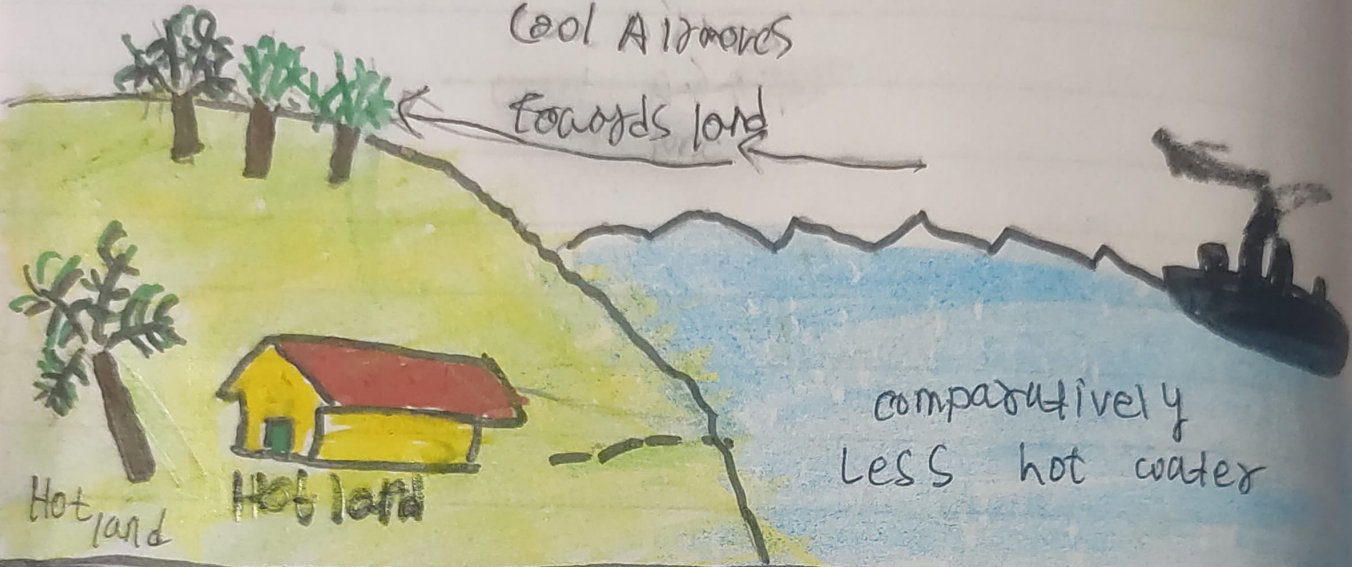 Cool Air moves
towards land
comparatively
Less hot water
Hot land
Hot land